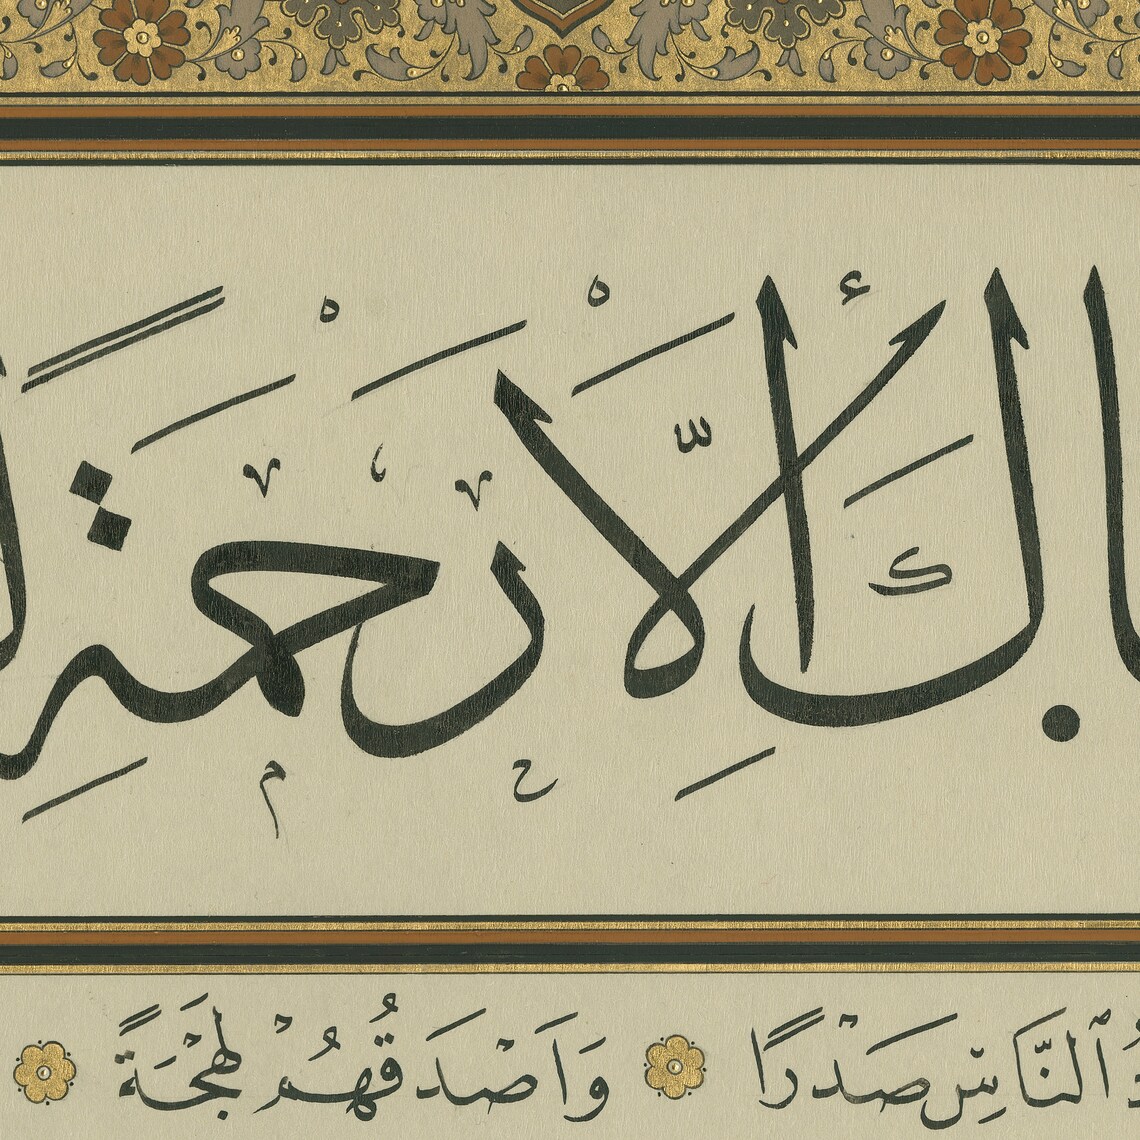 اكَ اِلَّا رَحْمَةً
ٱلنَّاسِ صَدْرًا وَاَصْدَقُهُمْ لَهْجَةً